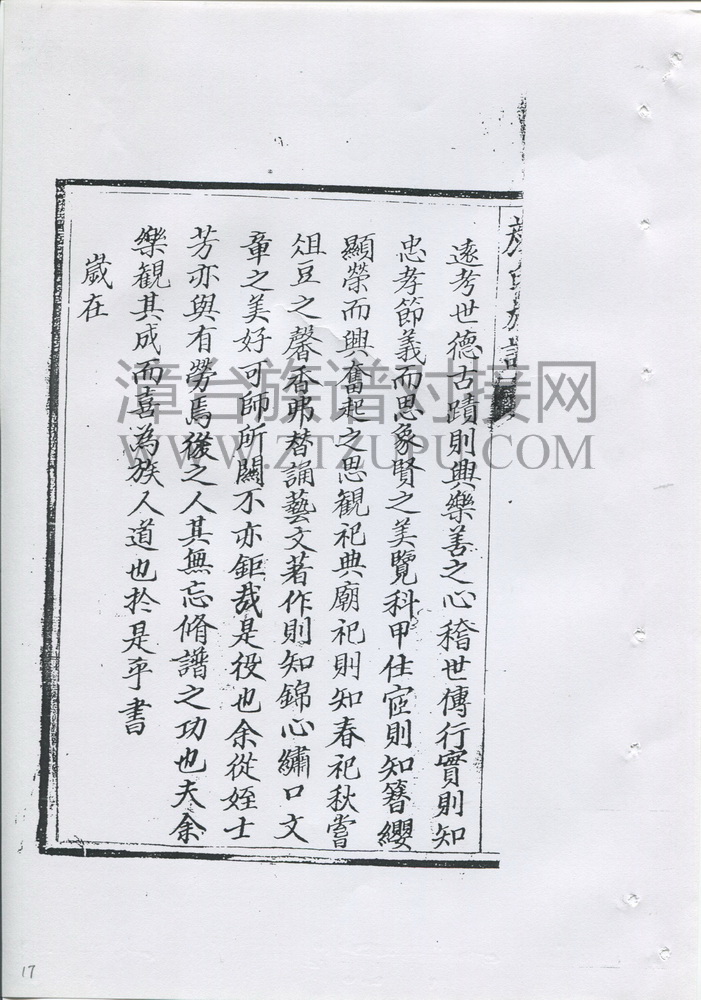 遠考世德古蹟則興樂善之心稽世傳行實則知
忠孝節義而思象賢之美覽科甲仕宦則知簪纓
顯榮而興奮起之思觀祀典廟祀則知春祀秋嘗
俎豆之馨香弗替誦藝文著作則知錦心繡口文
章之美好可師所關不亦鉅哉是役也余從姪士
芳亦與有勞焉後之人其無忘脩譜之功也夫余
樂觀其成而喜為族人道也於是乎書
歲在
漳台族谱对接网
WWW.ZTZUPU.COM
17